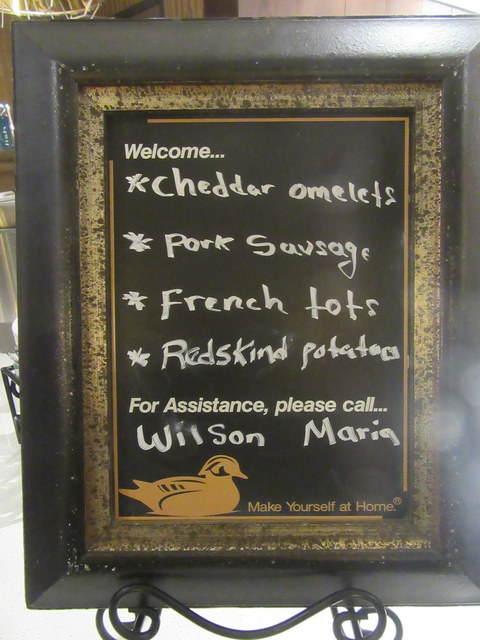 Welcome...
*Cheddar omelets
* Pork Sausage
* French tots
* Redskind potatoes
For Assistance, please call...
Wilson Maria
Make Yourself at Home.®